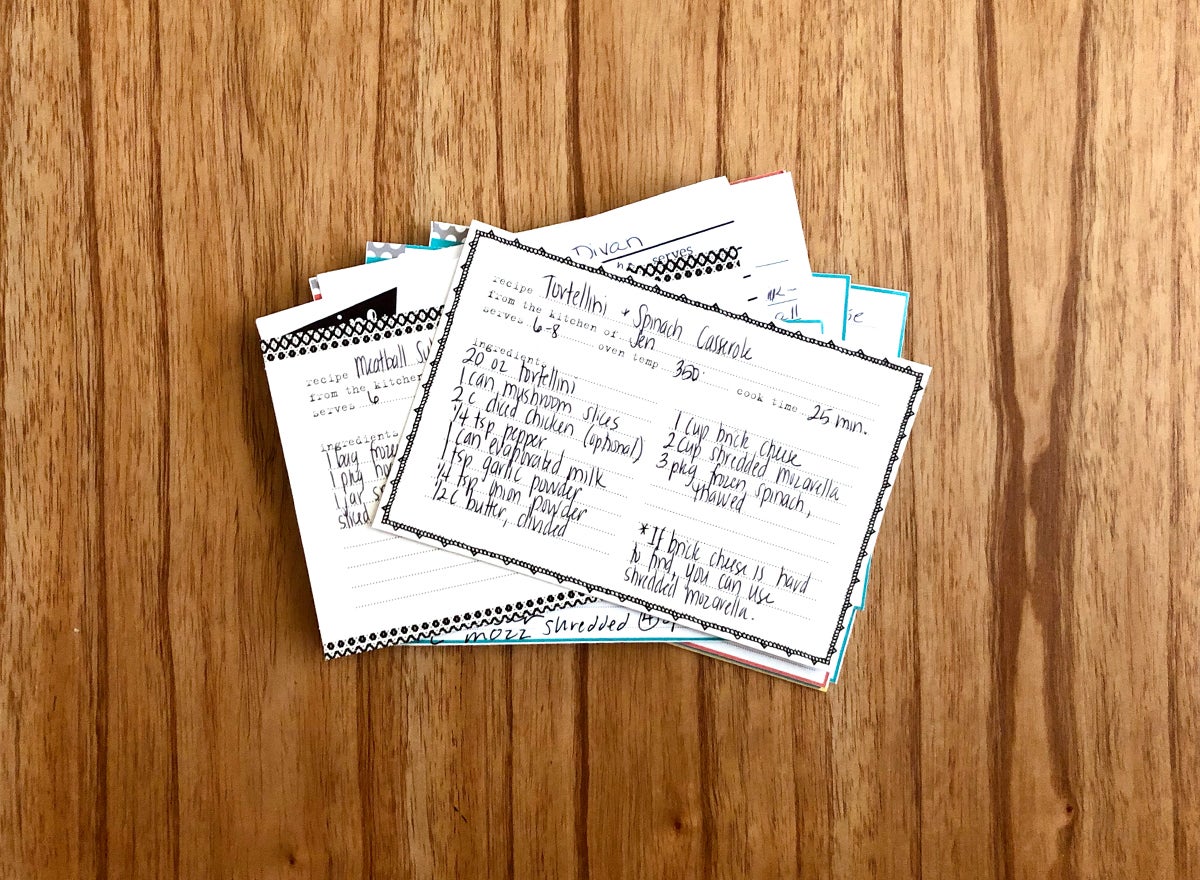 Divan
serves
recipe Tortellini + Spinach Casserole
from the kitchen of Jen
serves 6-8 oven temp 350° cook time 25 min.
ingredients
20 oz tortellini
1 can mushroom slices
2 c diced chicken (optional)
1/4 tsp pepper
1 can evaporated milk
1 tsp garlic powder
1/4 tsp onion powder
1/2 c butter, divided
1 cup brick cheese
2 cup shredded mozarella
3 pkg frozen spinach,
thawed
*If brick cheese is hard
to find, you can use
shredded mozarella.
recipe Meatball
from the kitchen
serves 6
ingredients
1 bag frozen
1 pkg
1 jar
sliced
mozz shredded